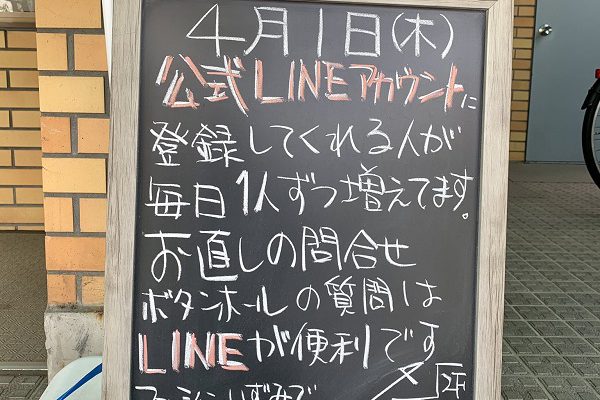 4月1日(木)
公式LINEアカウントに
登録してくれる人が
毎日1人ずつ増えてます。
お直しの問合せ
ボタンホールの質問は
LINEが便利です
2F